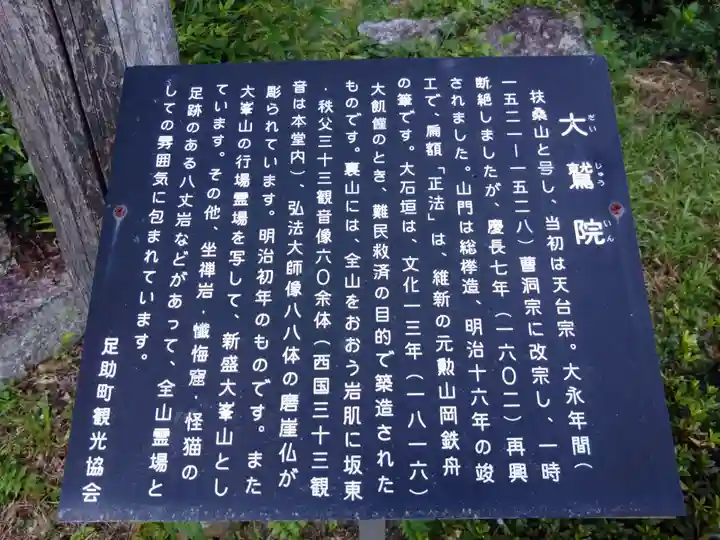 大鷲院
だいじゅういん
扶桑山と号し、当初は天台宗。大永年間（
一五二一―一五二八）曹洞宗に改宗し、一時
断絶しましたが、慶長七年（一六〇二）再興
されました。山門は総欅造、明治十六年の竣
工で、扁額「正法」は、維新の元勲山岡鉄舟
の筆です。大石垣は、文化一三年（一八一六）
大飢饉のとき、難民救済の目的で築造された
ものです。裏山には、全山をおおう岩肌に坂東
・秩父三十三観音像六〇余体（西国三十三観
音は本堂内）、弘法大師像八八体の磨崖仏が
彫られています。明治初年のものです。また
大峯山の行場霊場を写して、新盛大峯山とし
ています。その他、坐禅岩・懺悔窟・怪猫の
足跡のある八丈岩などがあって、全山霊場と
しての雰囲気に包まれています。
足助町観光協会